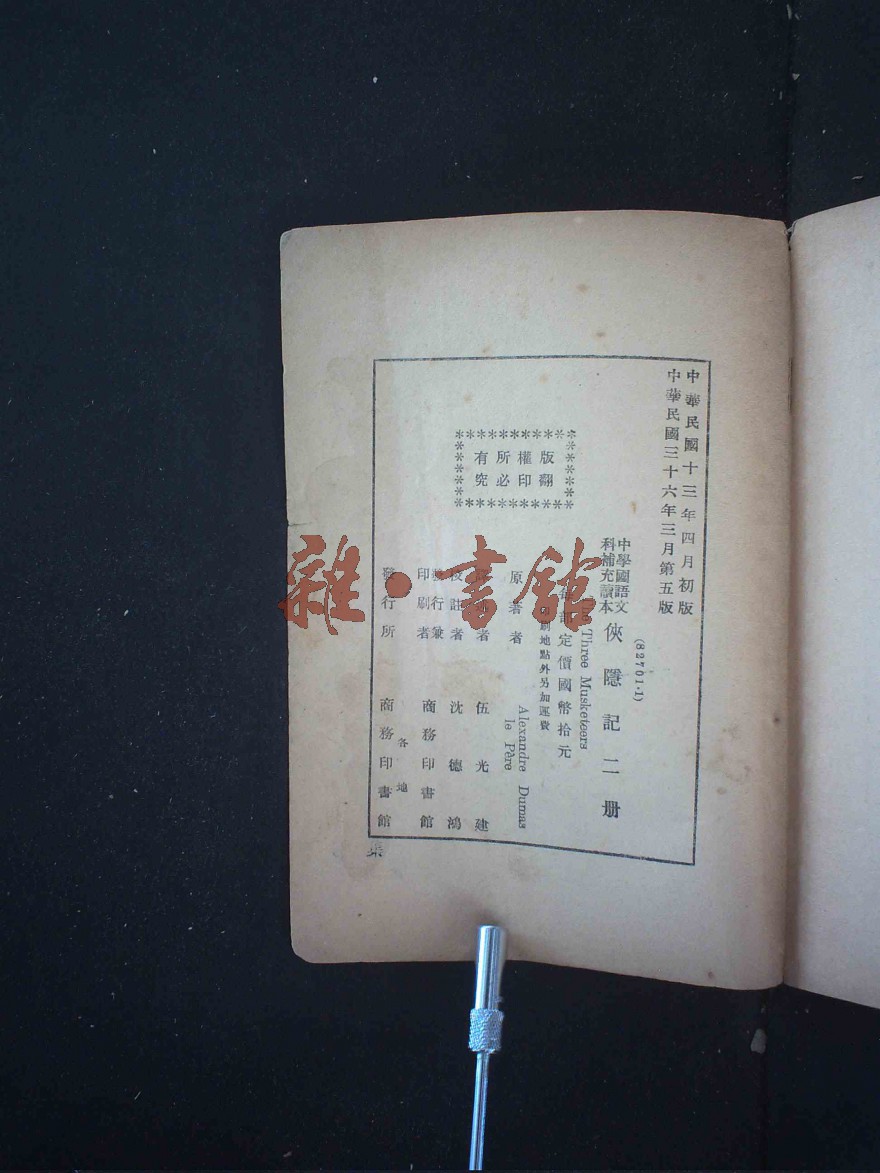 中華民國十三年四月初版
中華民國三十六年三月第五版
(82701·1)
中學國語文
科補充讀本
俠隱記二册
The Three Musketeers
每部定價國幣拾元
印刷地點外另加運費
版權所有
翻印必究
原著者 Alexandre Dumas
le Père
者 伍光建
校註者 沈德鴻
發行兼
印刷者 商務印書館
發行所 各地
商務印書館
雜·書館